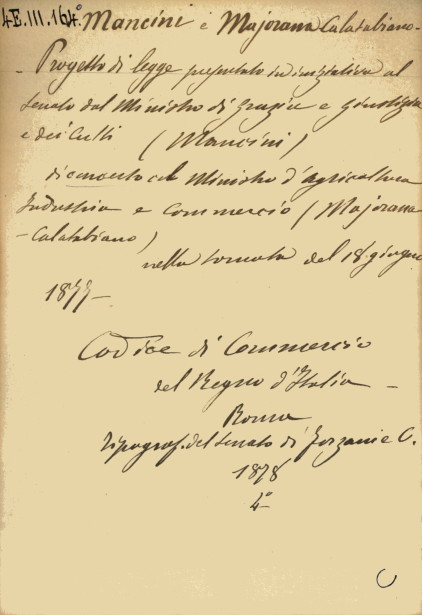 4E.III.164.
Mancini e Majorana Calatabiano -
- Progetto di legge presentato in iniziativa al
Senato dal Ministro di Grazia e Giustizia
e dei Culti (Mancini)
di concerto col Ministro d'Agricoltura
Industria e Commercio (Majorana
- Calatabiano)
nella tornata del 18 giugno
1877 -
Codice di Commercio
del Regno d'Italia -
Roma
Tipograf. del Senato di Forzani e C.
1878
4º